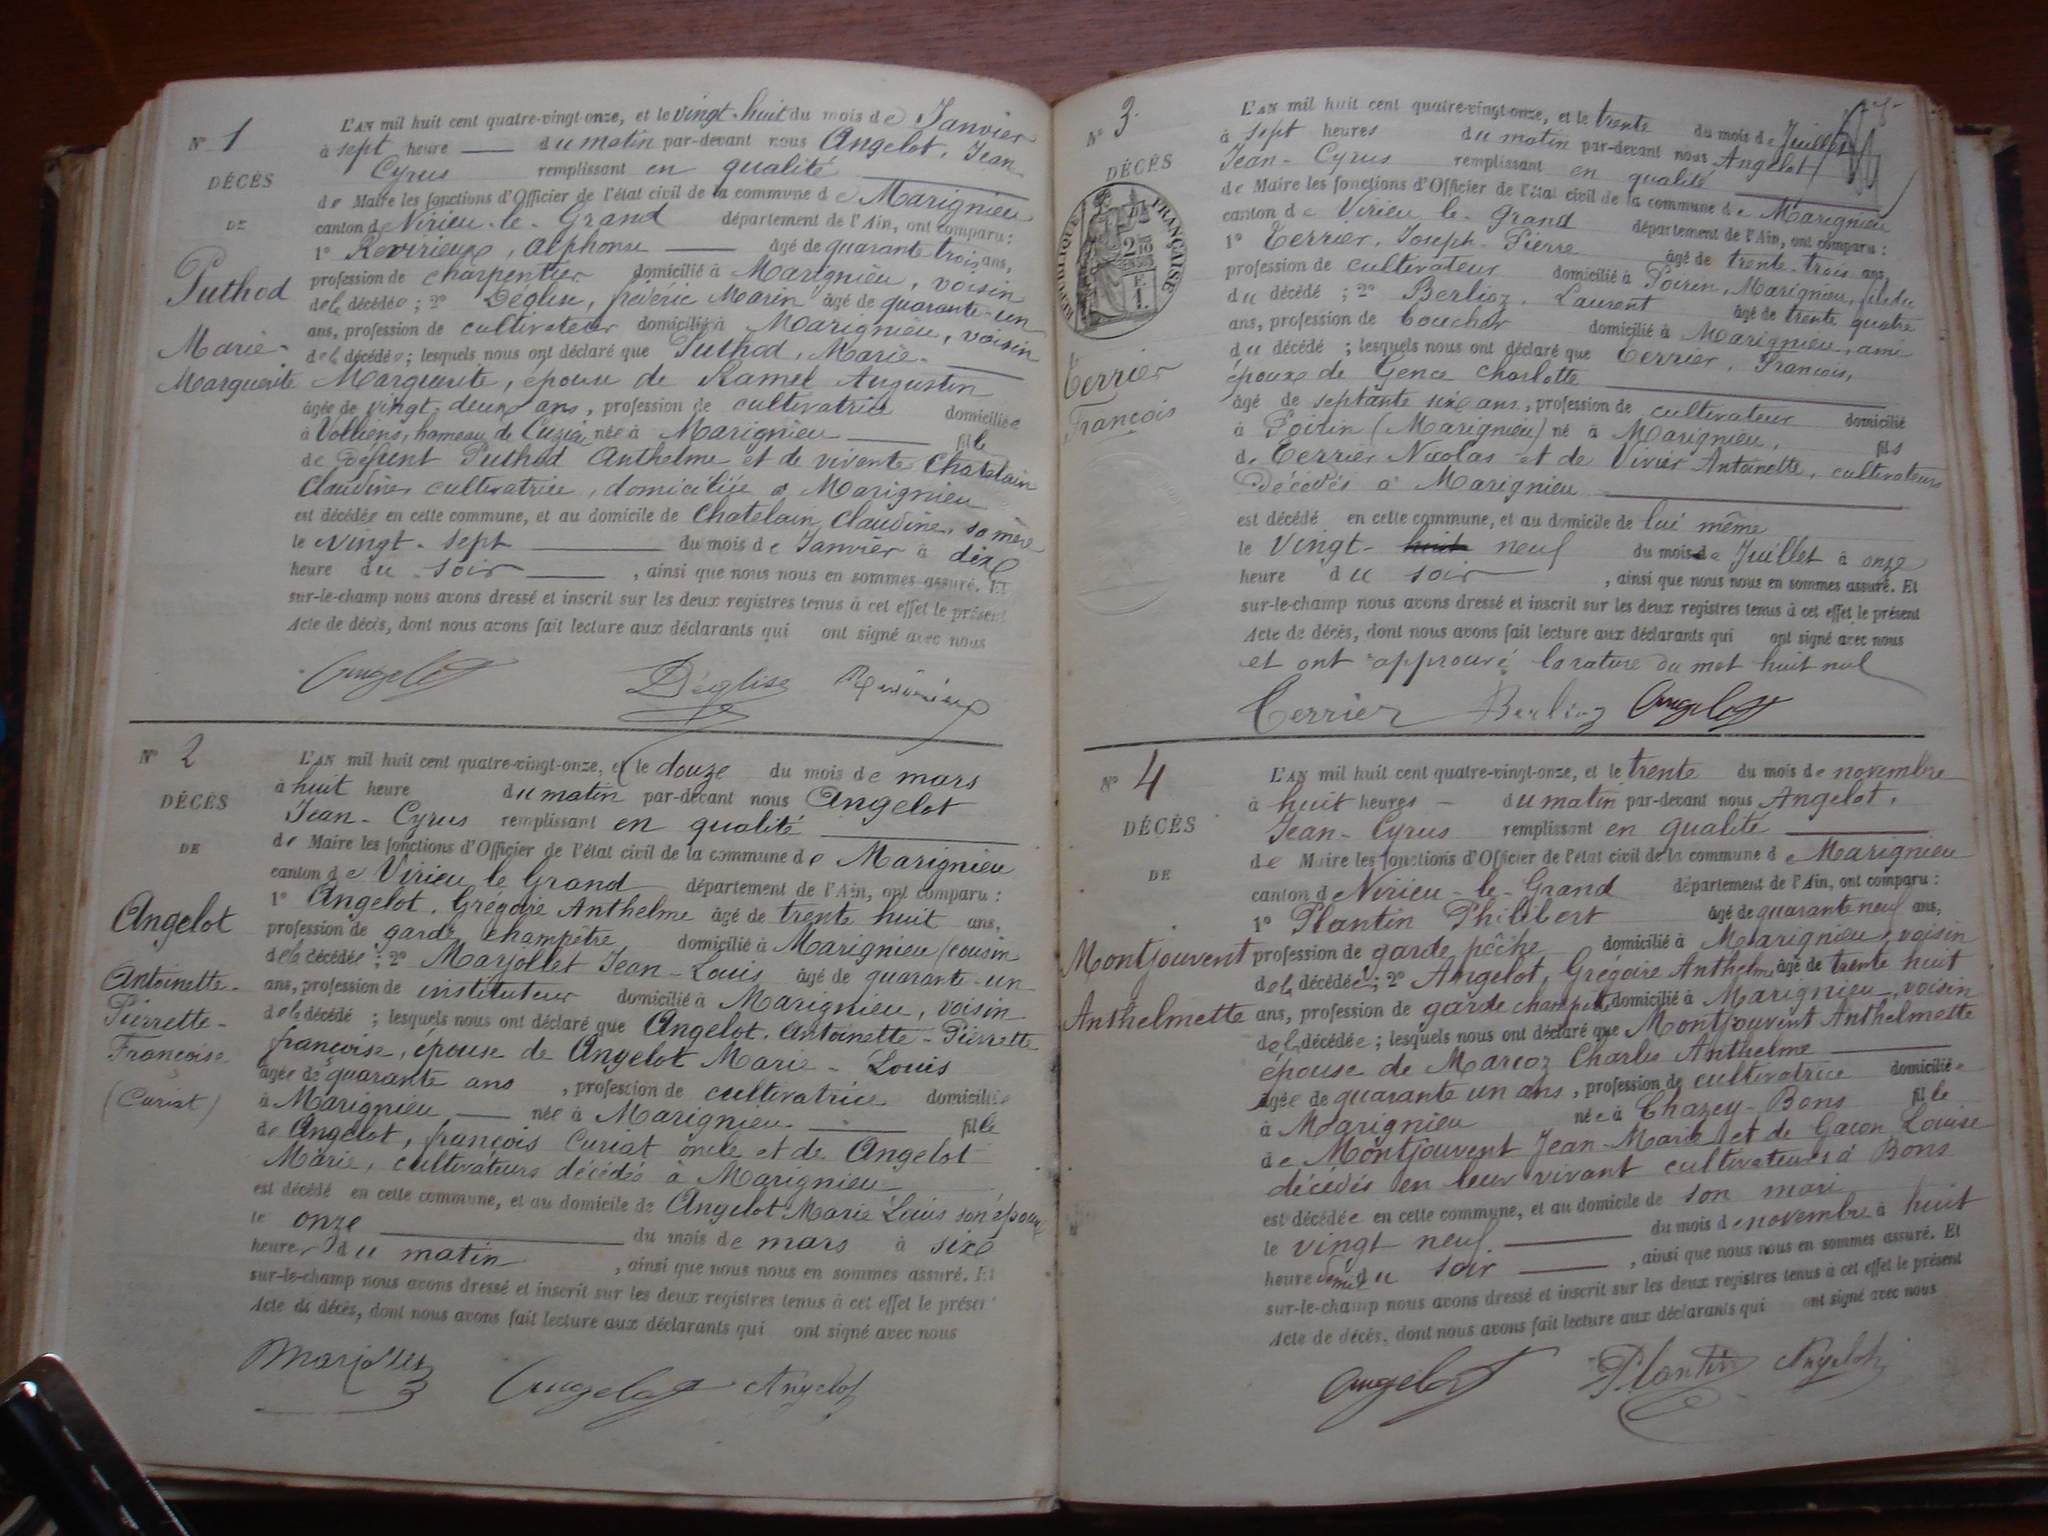 N° 1
DÉCÈS
DE
Puthod
Marie-
Marguerite
L'AN mil huit cent quatre-vingt-onze, et le vingt-huit du mois de Janvier
à sept heure du matin par-devant nous Angelot, Jean
Cyrus remplissant en qualité
de Maire les fonctions d'Officier de l'état civil de la commune de Marignieu
canton de Virieu-le-Grand département de l'Ain, ont comparu :
1° Revirieux, Alphonse âgé de quarante trois ans,
profession de charpentier domicilié à Marignieu, voisin
de la décédée ; 2° Déglise, frédéric Marin âgé de quarante-un
ans, profession de cultivateur domicilié à Marignieu, voisin
de la décédée ; lesquels nous ont déclaré que Puthod, Marie-
Marguerite, épouse de Ramel Augustin
âgée de vingt-deux ans, profession de cultivatrice domiciliée
à Volliens, hameau de Cuzieu née à Marignieu fille
de défunt Puthod Anthelme et de vivente Chatelain
Claudine, cultivatrice, domiciliée à Marignieu
est décédée en cette commune, et au domicile de Chatelain, Claudine, sa mère
le vingt-sept du mois de Janvier à dix
heure du soir , ainsi que nous nous en sommes assuré. Et
sur-le-champ nous avons dressé et inscrit sur les deux registres tenus à cet effet le présent
Acte de décès, dont nous avons fait lecture aux déclarants qui ont signé avec nous
Angelot Déglise Revirieux
N° 2
DÉCÈS
DE
Angelot
Antoinette-
Pierrette-
Françoise
(Curiat)
L'AN mil huit cent quatre-vingt-onze, et le douze du mois de mars
à huit heure du matin par-devant nous Angelot
Jean-Cyrus remplissant en qualité
de Maire les fonctions d'Officier de l'état civil de la commune de Marignieu
canton de Virieu le Grand département de l'Ain, ont comparu :
1° Angelot, Grégoire Anthelme âgé de trente huit ans,
profession de garde champêtre domicilié à Marignieu, cousin
de la décédée ; 2° Marjollet Jean-Louis âgé de quarante-un
ans, profession de instituteur domicilié à Marignieu, voisin
de la décédé ; lesquels nous ont déclaré que Angelot, Antoinette-Pierrette
françoise, épouse de Angelot Marie-Louis
âgée de quarante ans , profession de cultivatrice domiciliée
à Marignieu née à Marignieu fille
de Angelot, françois Curiat oncle et de Angelot
Marie, cultivateurs décédés à Marignieu
est décédé en cette commune, et au domicile de Angelot Marie Louis son époux
le onze du mois de mars à six
heures du matin , ainsi que nous nous en sommes assuré. Et
sur-le-champ nous avons dressé et inscrit sur les deux registres tenus à cet effet le présent
Acte de décès, dont nous avons fait lecture aux déclarants qui ont signé avec nous
Marjollet Angelot Angelot
N° 3
DÉCÈS
RÉPUBLIQUE FRANÇAISE
2
Terrier
François
L'AN mil huit cent quatre-vingt-onze, et le trente du mois de Juillet
à sept heures du matin par-devant nous Angelot
Jean-Cyrus remplissant en qualité
de Maire les fonctions d'Officier de l'état civil de la commune de Marignieu
canton de Virieu le-Grand département de l'Ain, ont comparu :
1° Terrier, Joseph-Pierre âgé de trente-trois ans,
profession de cultivateur domicilié à Poirin, Marignieu, fils du
du décédé ; 2° Berlioz, Laurent âgé de trente quatre
ans, profession de boucher domicilié à Marignieu, ami
du décédé ; lesquels nous ont déclaré que Terrier, François,
époux de Gence Charlotte
âgé de septante six ans, profession de cultivateur domicilié
à Poirin (Marignieu) né à Marignieu, fils
de Terrier Nicolas et de Vivier Antoinette, cultivateurs
décédés à Marignieu
est décédé en cette commune, et au domicile de lui même
le vingt-huit neuf du mois de Juillet à onze
heure du soir , ainsi que nous nous en sommes assuré. Et
sur-le-champ nous avons dressé et inscrit sur les deux registres tenus à cet effet le présent
Acte de décès, dont nous avons fait lecture aux déclarants qui ont signé avec nous
et ont approuvé la rature du mot huit nul
Terrier Berlioz Angelot
N° 4
DÉCÈS
DE
Montjouvent
Anthelmette
L'AN mil huit cent quatre-vingt-onze, et le trente du mois de novembre
à huit heures du matin par-devant nous Angelot,
Jean-Cyrus remplissant en qualité
de Maire les fonctions d'Officier de l'état civil de la commune de Marignieu
canton de Virieu-le-Grand département de l'Ain, ont comparu :
1° Plantin Philibert âgé de quarante neuf ans,
profession de garde pêche domicilié à Marignieu, voisin
de la décédée ; 2° Angelot, Grégoire Anthelme âgé de trente huit
ans, profession de garde champêtre, domicilié à Marignieu, voisin
de la décédée ; lesquels nous ont déclaré que Montjouvent Anthelmette
épouse de Marcoz Charles Anthelme
âgée de quarante un ans, profession de cultivatrice domiciliée
à Marignieu née à Chazey-Bons fille
de Montjouvent Jean-Marie et de Gacon Louise
décédés en leur vivant cultivateurs à Bons
est décédée en cette commune, et au domicile de son mari
le vingt neuf du mois de novembre à huit
heure demie du soir , ainsi que nous nous en sommes assuré. Et
sur-le-champ nous avons dressé et inscrit sur les deux registres tenus à cet effet le présent
Acte de décès, dont nous avons fait lecture aux déclarants qui ont signé avec nous
Angelot Plantin Angelot